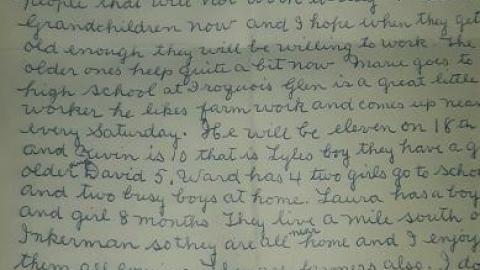 people that will not work
Grandchildren now and I hope when they get
old enough they will be willing to work. The
older ones help quite a bit now Marie goes to
high School at Iroquois Glen is a great little
worker he likes farm work and comes up near
every Saturday. He will be eleven on 18th
and is 10 that is Lyles boy they have a g
older David 5. Ward has 4 two girls go to schoo
and two busy boys at home. Laura has a boy
and girl 8 months They live a mile south o
Inkerman so they are all near home and I enjoy
them all farmers also. I do